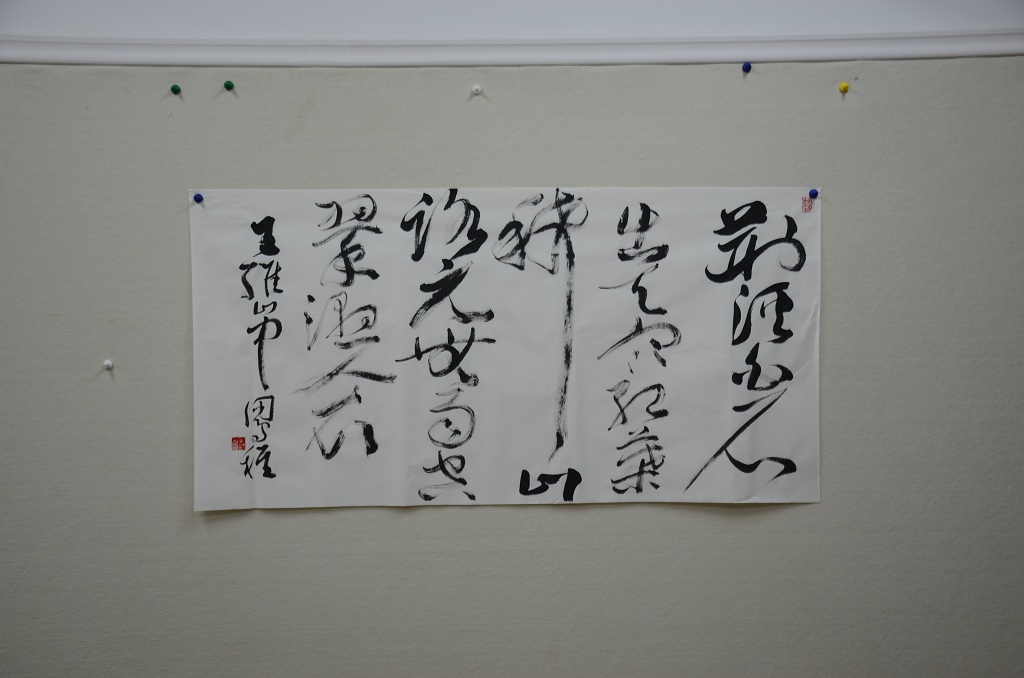 荆溪白石
出天寒紅葉
稀山
路元無雨空
翠濕人衣
王維山中